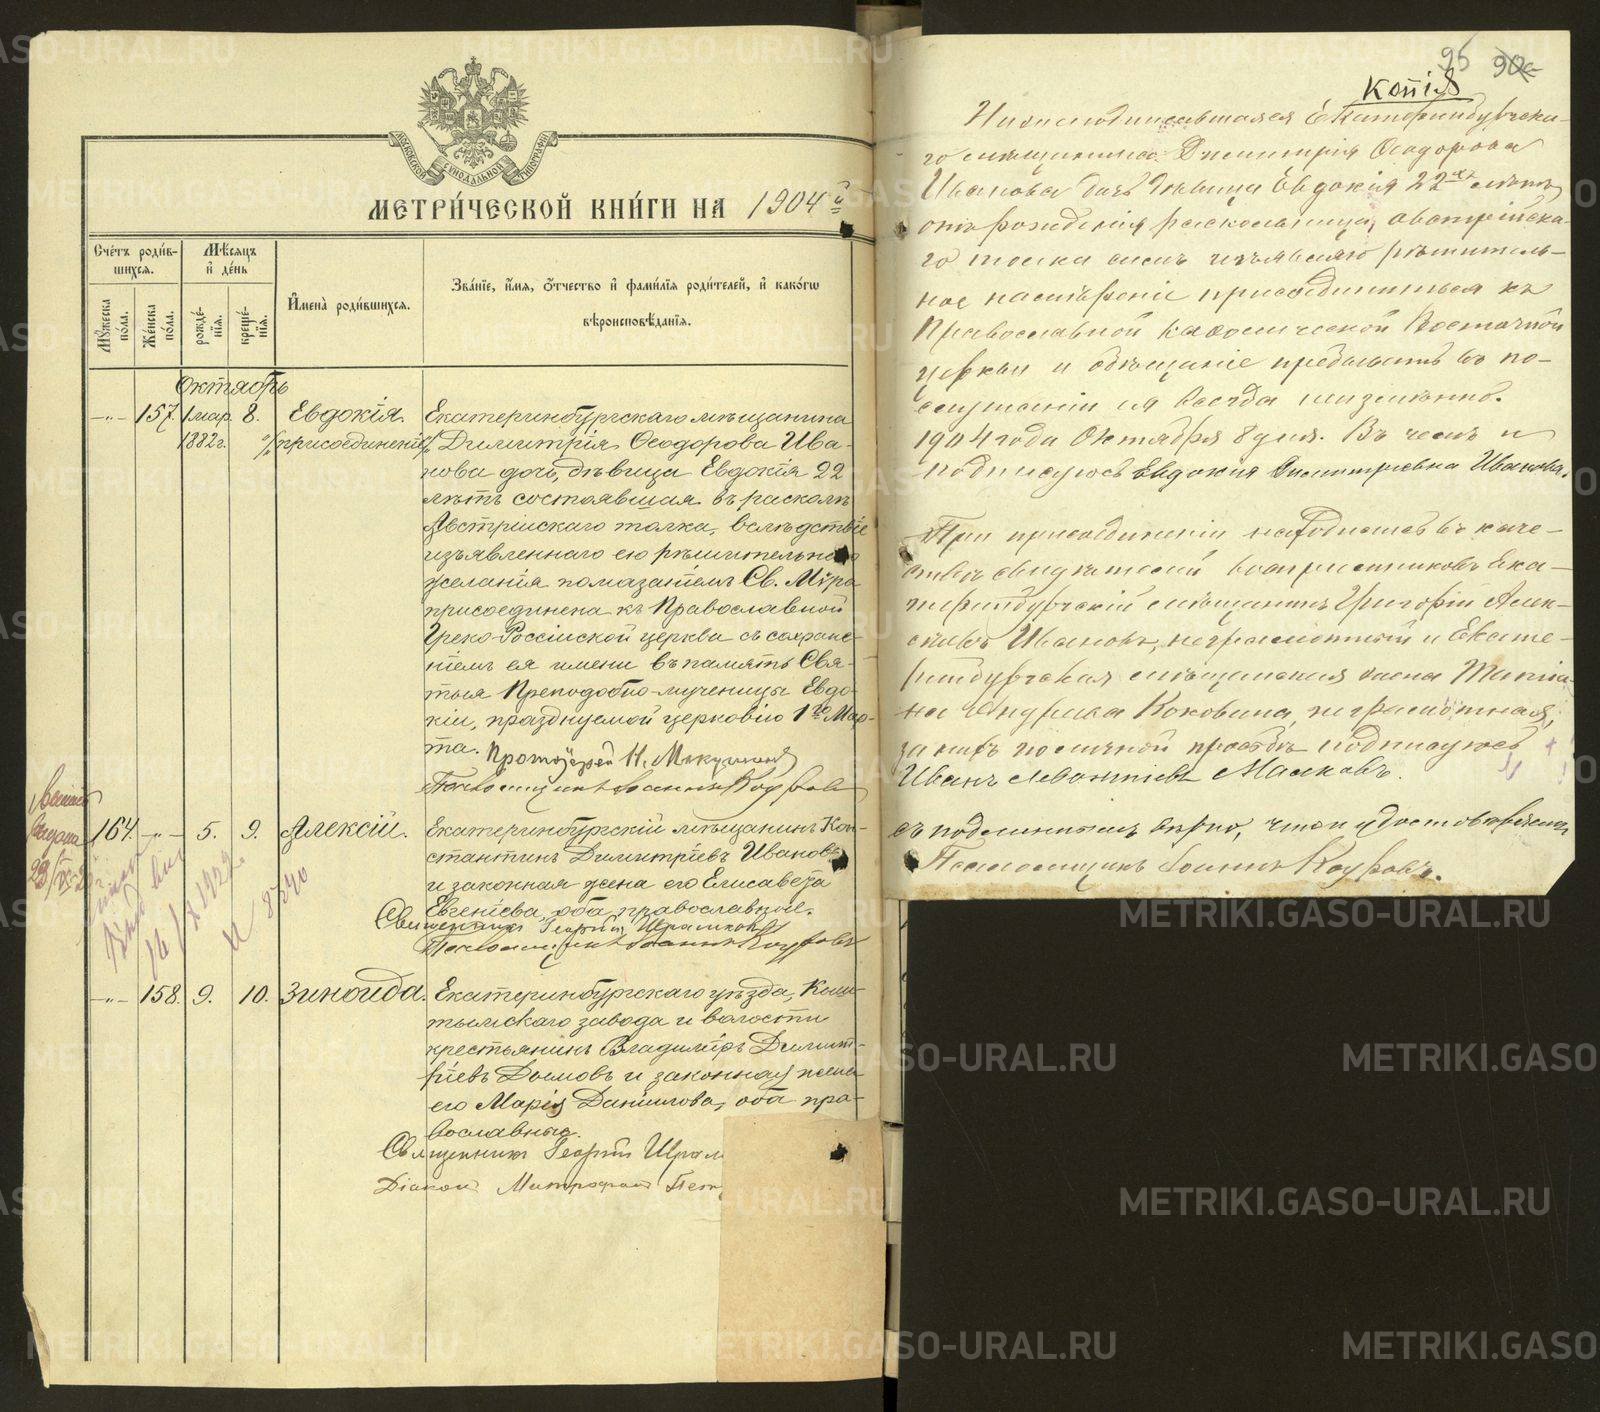 МОСКОВСКОЙ СѴНОДАЛЬНОЙ ТИПОГРАФІИ
МЕТРИ́ЧЕСКОЙ КНИ́ГИ НА 1904 й
Сче́тъ роди́вшихся.
Мѣ́сяцъ и҆ де́нь
И҆мена̀ роди́вшихся.
Зва́нїе, и҆́мя, ѻ҆́тчество и҆ фами́лїя роди́телей, и҆ како́гѡ
вѣроисповѣ́данїя.
Мꙋжеска по́ла.
Же́нска по́ла.
рожде́нїя.
креще́нїя.
Октябрь
-"- 157. 1 мар. 1882 г. 8. Евдокія.
о/присоединеніе/о
Екатеринбургскаго мѣщанина
Димитрія Ѳеодорова Ива-
нова дочь, дѣвица Евдокія 22
лѣтъ состоявшая въ расколѣ
Австрійскаго толка, вслѣдствіе
изъявленнаго ею рѣшительнаго
желанія помазаніемъ Св. Мѵра
присоединена къ Православной
Греко-Россійской церкви съ сохране-
ніемъ ея имени въ память Свя-
тыя Преподобно-мученицы Евдо-
кіи, празднуемой церковію 1го Мар-
та. Протоіерей Н.
Псаломщикъ Іоаннъ Коуровъ
164. -"- 5. 9. Алексій.
Екатеринбургскій мѣщанинъ Кон-
стантинъ Димитріевъ Ивановъ
и законная жена его Елисавета
Евгеніева, оба православные.
Священникъ Георгій
Псаломщикъ Іоаннъ Коуровъ
16/X 1922
N 8340
-"- 158. 9. 10. Зинаида.
Екатеринбургскаго уѣзда, Кыш-
тымскаго завода и волости
крестьянинъ Владиміръ Димит-
ріевъ Домовъ и законная жена
его Марія Даніилова, оба пра-
вославные.
Священникъ Георгій
Діаконъ Митрофанъ
95
Копія
Нижеподписавшаяся Екатеринбургска-
го мѣщанина Димитрія Ѳеодорова
Иванова дочь дѣвица Евдокія 22хъ лѣтъ
отъ рожденія раскольница, австрійска-
го толка симъ изъявляю рѣшитель-
ное намѣреніе присоединиться къ
Православной каѳолической Восточной
церкви и обѣщаніе пребывать въ по-
слушаніи ея всегда неизмѣнно.
1904 года Октября 8 дня. Въ чемъ и
подписуюсь Евдокия Дмитриевна Иванова.
При присоединеніи находились въ каче-
ствѣ свидѣтелей воспріемниковъ Ека-
теринбургскій мѣщанинъ Григорій Алек-
сѣевъ Ивановъ, неграмотный и Екате-
ринбургская мѣщанская жена Татіа-
на Андреева Коковина, неграмотная,
за нихъ по личной просьбѣ подписуюсь
Иванъ Леонтіевъ Малковъ.
Съ подлиннымъ вѣрно, что и удостовѣряемъ
Псаломщикъ Іоаннъ Коуровъ.
METRIKI.GASO-URAL.RU